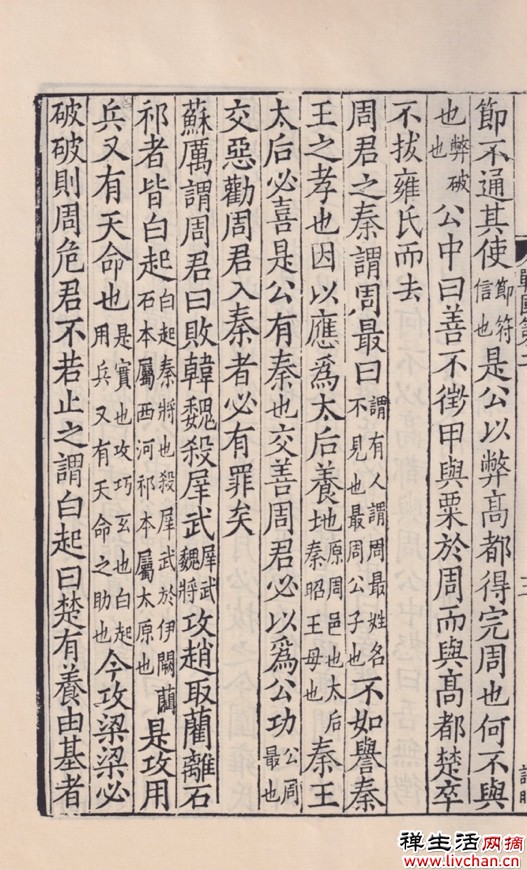 節不通其使節符信也是公以弊髙都得完周也何不與
也弊破也公中曰善不徵甲與粟於周而與髙都楚卒
不拔雍氏而去
周君之秦謂周最曰謂有人謂周最姓名不見也最周公子也不如譽秦
王之孝也因以應爲太后養地原周邑也太后秦昭王母也秦王
太后必喜是公有秦也交善周君必以爲公功公周最也
交惡勸周君入秦者必有罪矣
蘇厲謂周君曰敗韓魏殺犀武犀武魏將攻趙取藺離石
祁者皆白起白起秦將也殺犀武於伊闕藺石本屬西河祁本屬太原也是攻用
兵又有天命也是實也攻巧玄也白起用兵又有天命之助也今攻梁梁必
破破則周危君不若止之謂白起曰楚有養由基者
禅生活网摘
www.livchan.cn